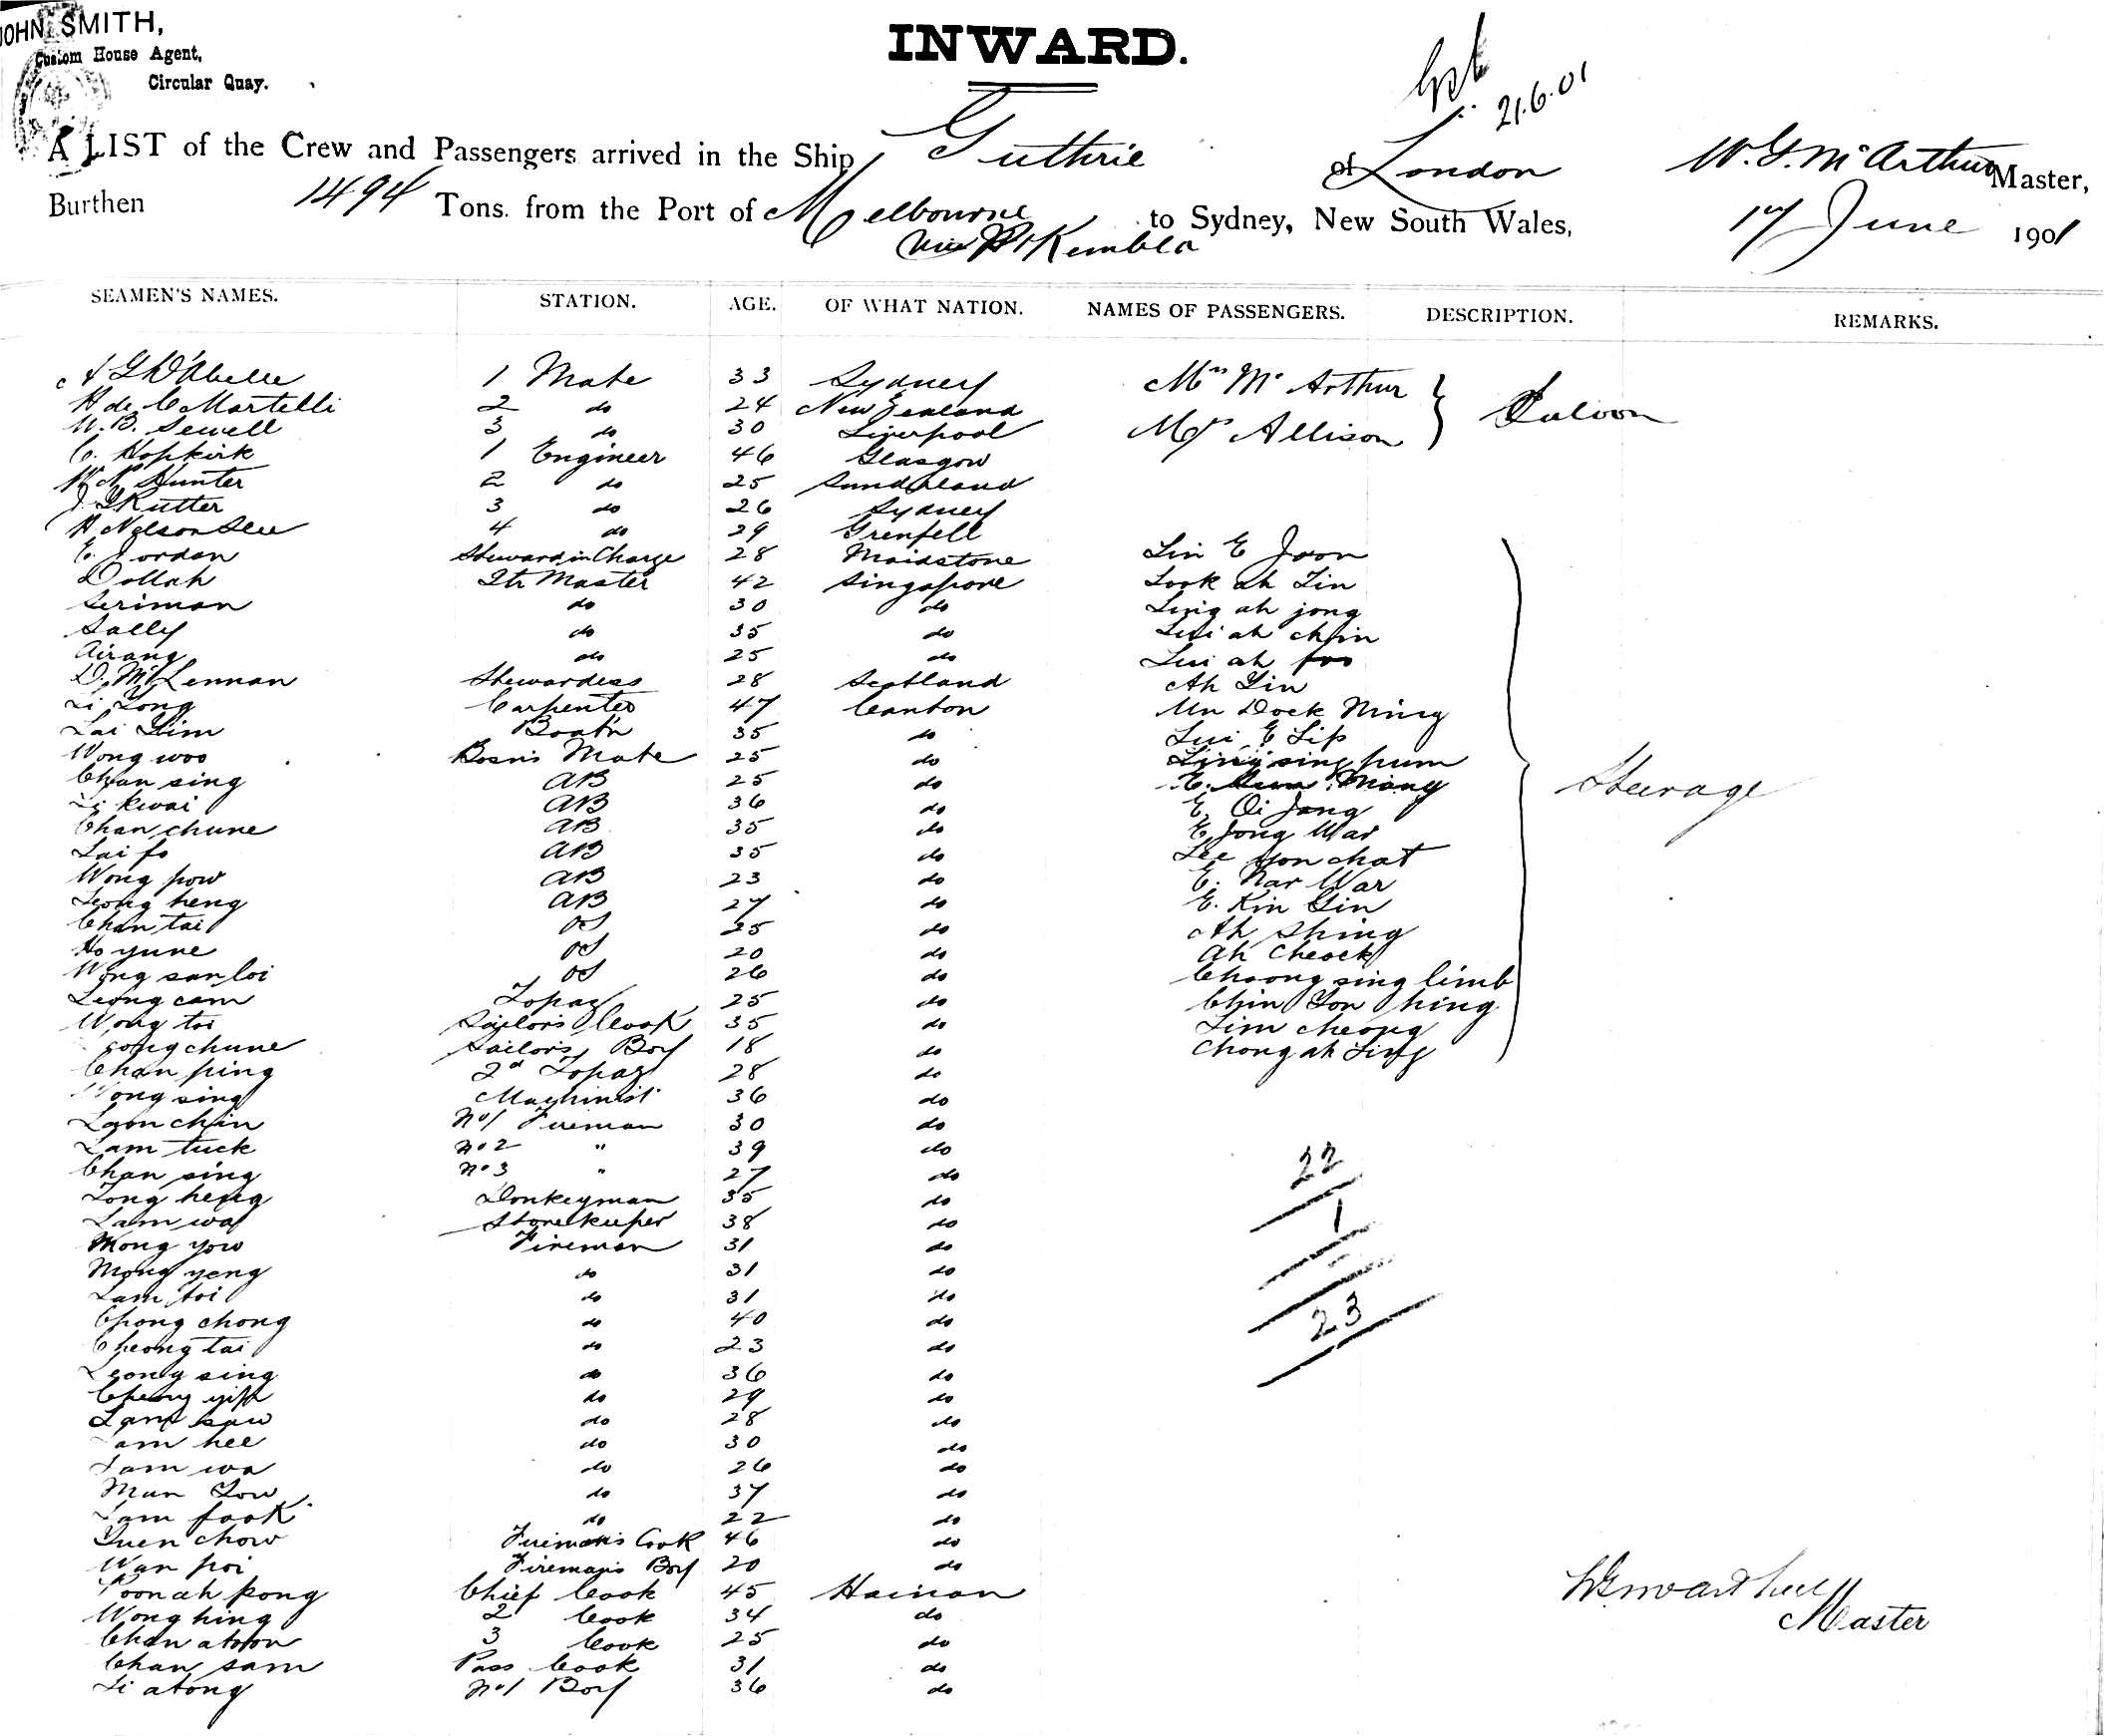 JOHN SMITH,
Custom House Agent,
Circular Quay.
INWARD.
21.6.01
A LIST of the Crew and Passengers arrived in the Ship Guthrie of London W. G. McArthur Master,
Burthen 1494 Tons. from the Port of Melbourne to Sydney, New South Wales, 17 June 1901
via Pt Kembla
SEAMEN'S NAMES. STATION. AGE. OF WHAT NATION. NAMES OF PASSENGERS. DESCRIPTION. REMARKS.
A G D'Abelle 1 Mate 33 Sydney Mrs McArthur
H de C Martelli 2 do 24 New Zealand Saloon
W. B. Sewell 3 do 30 Liverpool Mrs Allison
C. Hopkirk 1 Engineer 46 Glasgow
Hunter 2 do 25 Sunderland
J. G Rutter 3 do 26 Sydney
H Nelson 4 do 29 Grenfell
E. Jordan Steward in Charge 28 Maidstone Lin E Joon
Dollah Qtr Master 42 Singapore Look ah Lin
Seriman do 30 do Ling ah jong
Sally do 35 do Lui ah chin
Airang do 25 do Lui ah foo
D. McLennan Stewardess 28 Scotland Ah Yin
Li Zong Carpenter 47 Canton Un Dock Ning
Lai Yim Boats'n 35 do Lui E Lip
Wong woo Bosn's Mate 25 do Ling sing pum
Chan sing AB 25 do
Li kwai AB 36 do E. Qi Jang
Chan chune AB 35 do E Jong War
Lai fo AB 35 do Lee yon chat
Wong pow AB 23 do E. Nar War
Leong heng AB 27 do E. Kin Yin
Chan tai OS 25 do Ah Shing
Ho yune OS 20 do Ah Cheock
Wong san loi OS 26 do Choong sing limb
Leong cam Topaz 25 do Chin Yon hing
Wong toi Sailors Cook 35 do Lim cheong
eong chune Sailors Boy 18 do Chong ah Ling
Steerage
Chan ping 2d Topaz 28 do
Wong sing Machinist 36 do
Loon chin No 1 Fireman 30 do
Lam tuck No 2 " 39 do
Chan sing No 3 " 27 do
Tong heng Donkeyman 35 do
Lam wa Storekeeper 38 do
Mong yow Fireman 31 do
Mong yeng do 31 do
Lam toi do 31 do
Chong chong do 40 do
Cheong tai do 23 do
Leong sing do 36 do
Cheong yip do 29 do
Lam saw do 28 do
Lam hee do 30 do
Lam wa do 26 do
Mun Low do 37 do
Lam fook do 22 do
Yuen chow Fireman's Cook 46 do
Wan poi Fireman's Boy 20 do
Poon ah kong Chief Cook 45 Hainan
Wong hing 2 Cook 34 do
Chan atoon 3 Cook 25 do
Chan sam Pass Cook 31 do
Li atong No 1 Boy 36 do
22
1
23
W G McArthur
Master